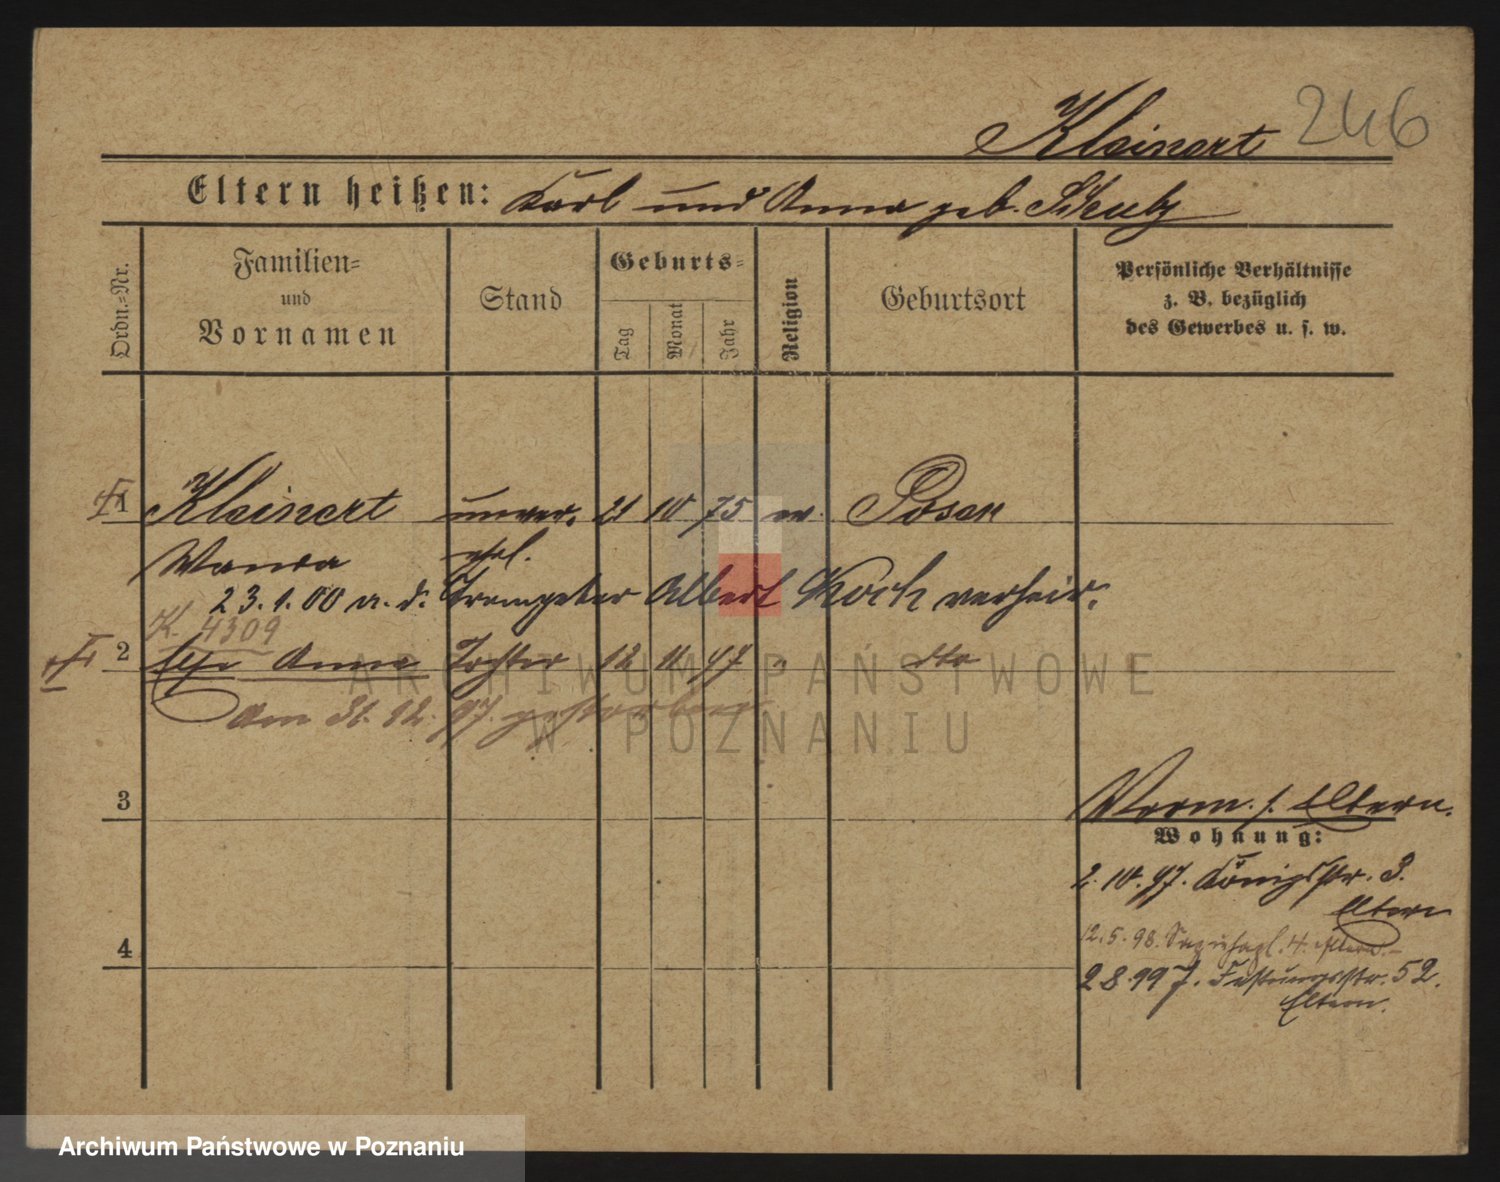 Kleinert 246
Eltern heißen: Karl und Anna geb.
Ordn.-Nr.
Familien-
und
Vornamen
Stand
Geburts-
Tag
Monat
Jahr
Religion
Geburtsort
Persönliche Verhältnisse
z. B. bezüglich
des Gewerbes u. s. w.
1 Kleinert unver. 21 10 75 ev. Posen
Wanda ehel.
23.1.00 m. d. Albert Koch verheir.
K. 4309
2 Else Anna Tochter 12 11 97 " dto
Am 31.12.97. gestorben
ARCHIWUM PAŃSTWOWE
W POZNANIU
3
Vorm. s. Eltern.
Wohnung:
2.10.97. Königsstr. 3.
Eltern
12.5.98. 4. Eltern.
4
2 8 99 7. Festungsstr. 52.
Eltern.
Archiwum Państwowe w Poznaniu